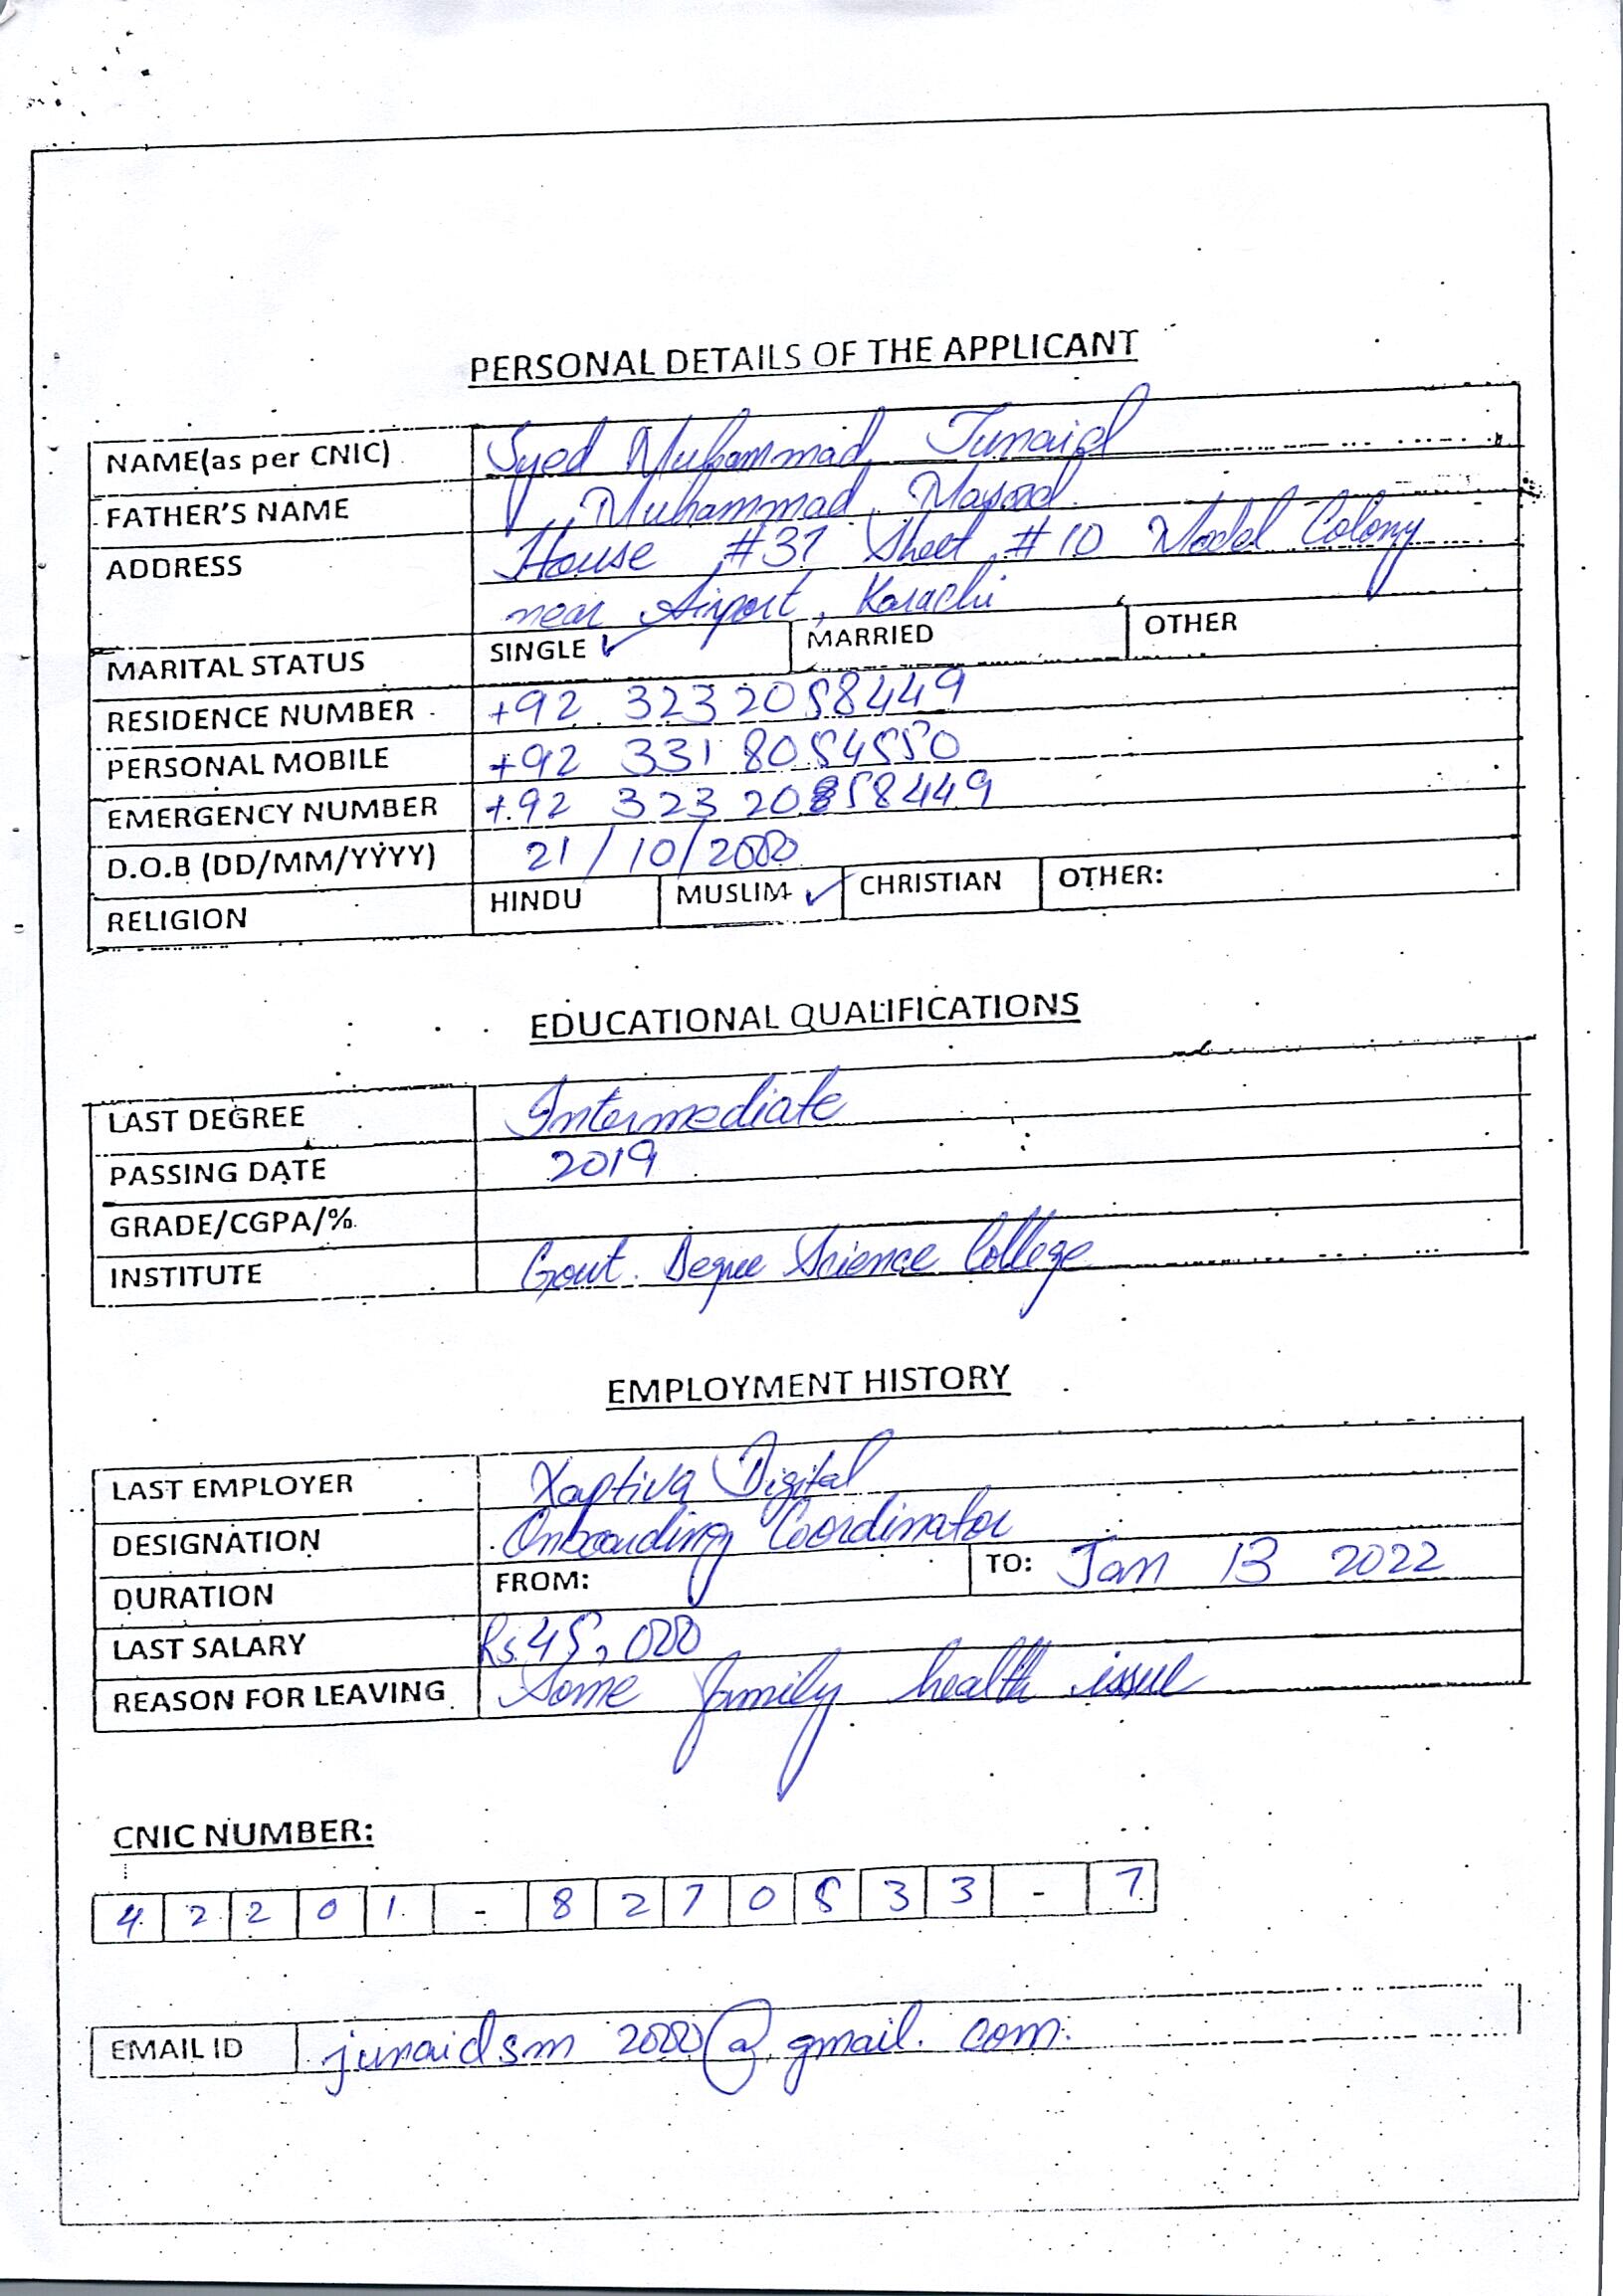 PERSONAL DETAILS OF THE APPLICANT
NAME(as per CNIC) Syed Muhammad Junaid
FATHER'S NAME Muhammad Masood
ADDRESS House #37 Sheet #10 Model Colony
near Airport, Karachi
MARITAL STATUS SINGLE ✓ MARRIED OTHER
RESIDENCE NUMBER +92 323 2058449
PERSONAL MOBILE +92 331 8054550
EMERGENCY NUMBER +92 323 2058449
D.O.B (DD/MM/YYYY) 21/10/2000
RELIGION HINDU MUSLIM ✓ CHRISTIAN OTHER:
EDUCATIONAL QUALIFICATIONS
LAST DEGREE Intermediate
PASSING DATE 2019
GRADE/CGPA/%
INSTITUTE Govt. Degree Science College
EMPLOYMENT HISTORY
LAST EMPLOYER Xaptiva Digital
DESIGNATION Onboarding Coordinator
DURATION FROM: TO: Jan 13 2022
LAST SALARY Rs.45,000
REASON FOR LEAVING Some family health issue
CNIC NUMBER:
42201-8270533-7
EMAIL ID junaidsm2000@gmail.com